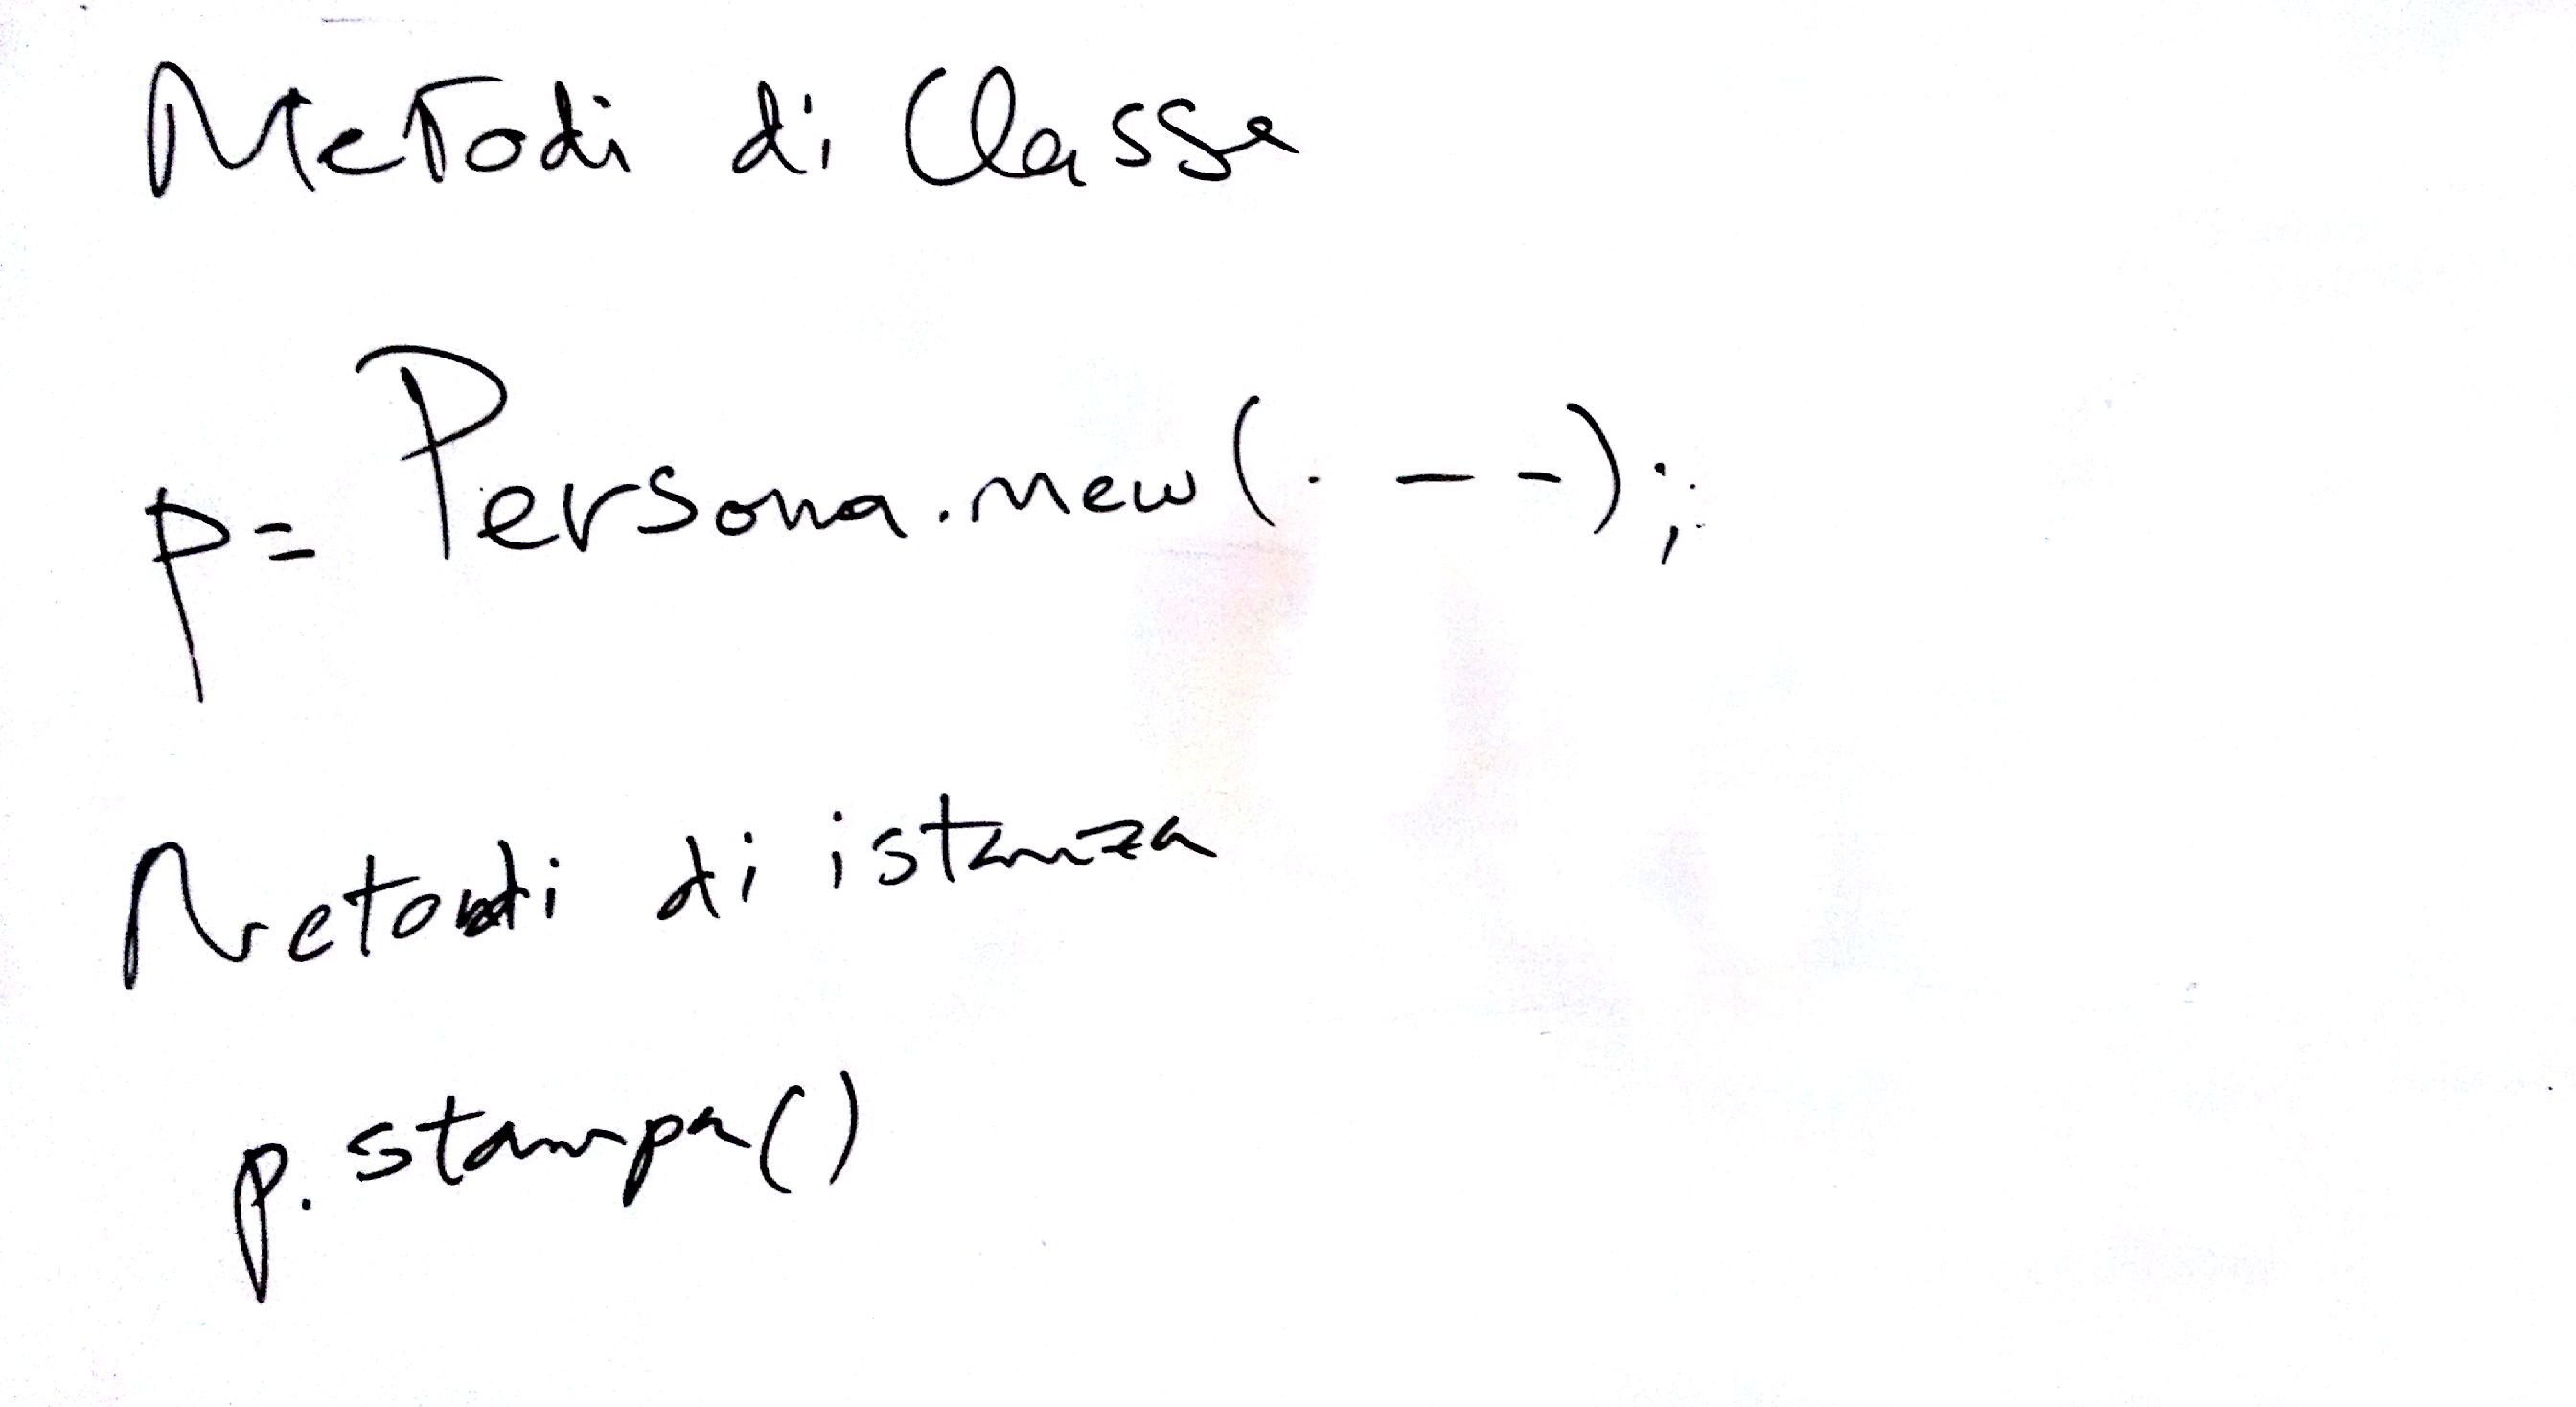 Metodi di Classe
p= Persona.new(. - -);
Metodi di istanza
p. stampa()